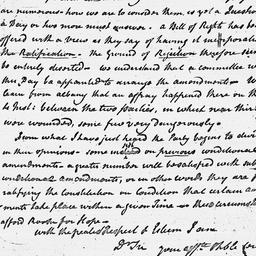 are numerous - how we are to consider them is yet a Question
a Day or two more must answer. a Bill of Rights has been
offered with a view as they say of having it incorporated
the Ratification. - the Ground of Rejection therefore seems
be entirely deserted - we understand that a committee w
this Day be appointed to arrange the amendments - We
learn from albany that an affray happened there on th
4 Inst: between the two parties, in which near thirt
were wounded, some few very dangerously -
From what I have just heard the Party begins to divi
in their opinions - some insist on previous conditional
amendments - a greater number will be satisfied with sub
conditional amendments, or in other words they are f
ratifying the Constitution on Condition that certain am
ments take place within a given Time - these circumst
afford Room for Hope -
with the greatest Respect & Esteem I am
Dr Sir your